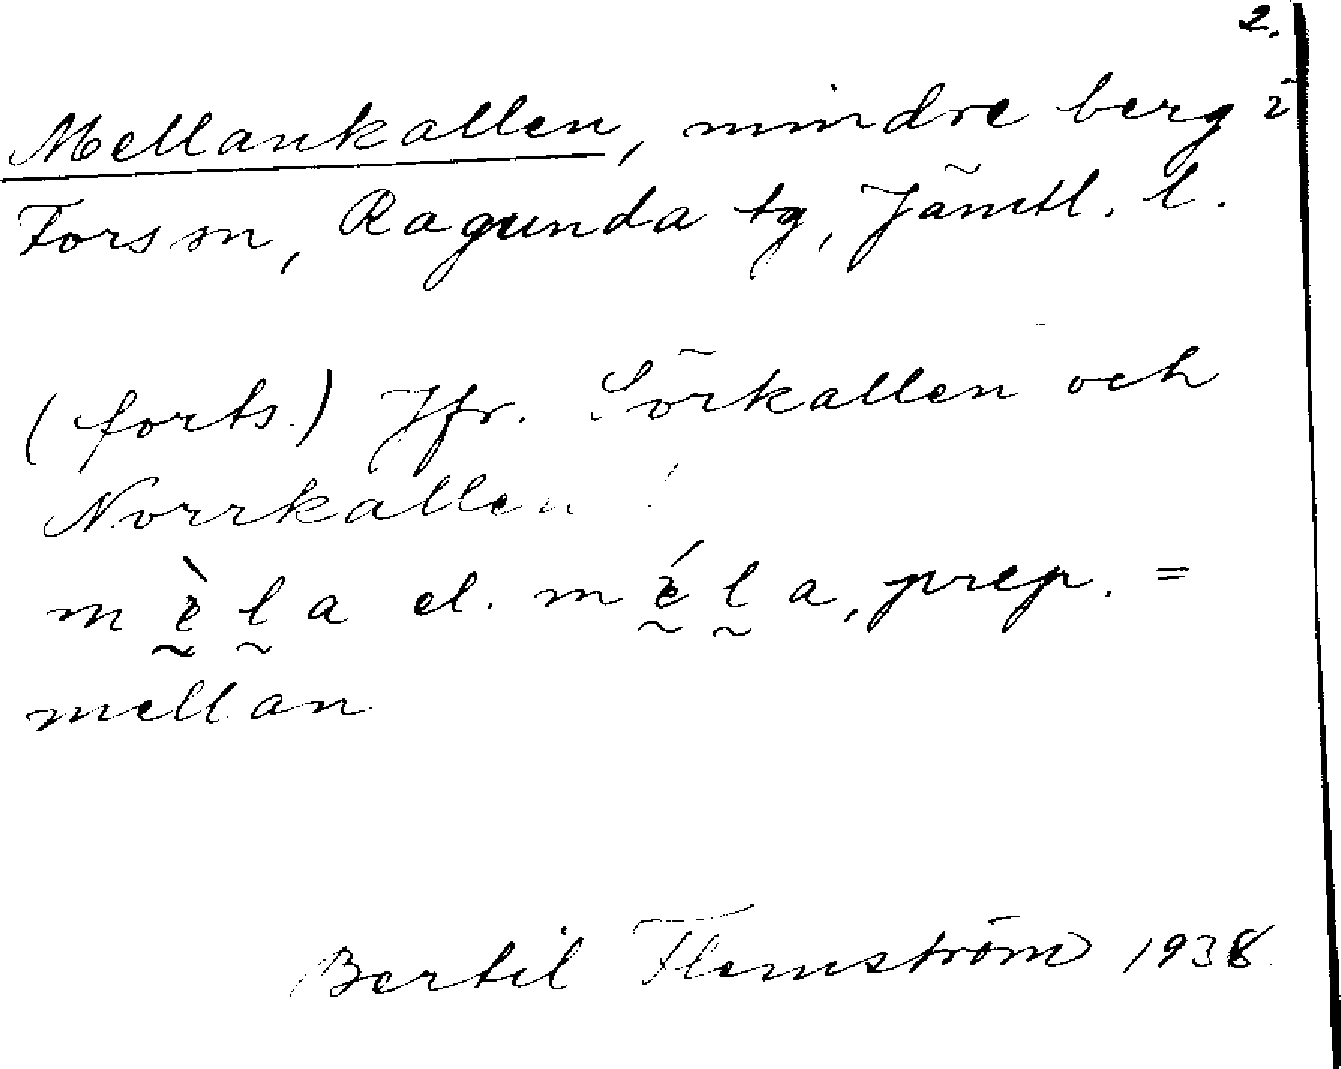 2.
Mellankallen, mindre berg i
Fors sn, Ragunda tg, Jämtl. l.
(forts.) Jfr. Sörkallen och
Norrkallen!
m ḛ̀ l̰ a el. m ḛ́ l̰ a, prep. =
mellan
Bertil Flemström 1938